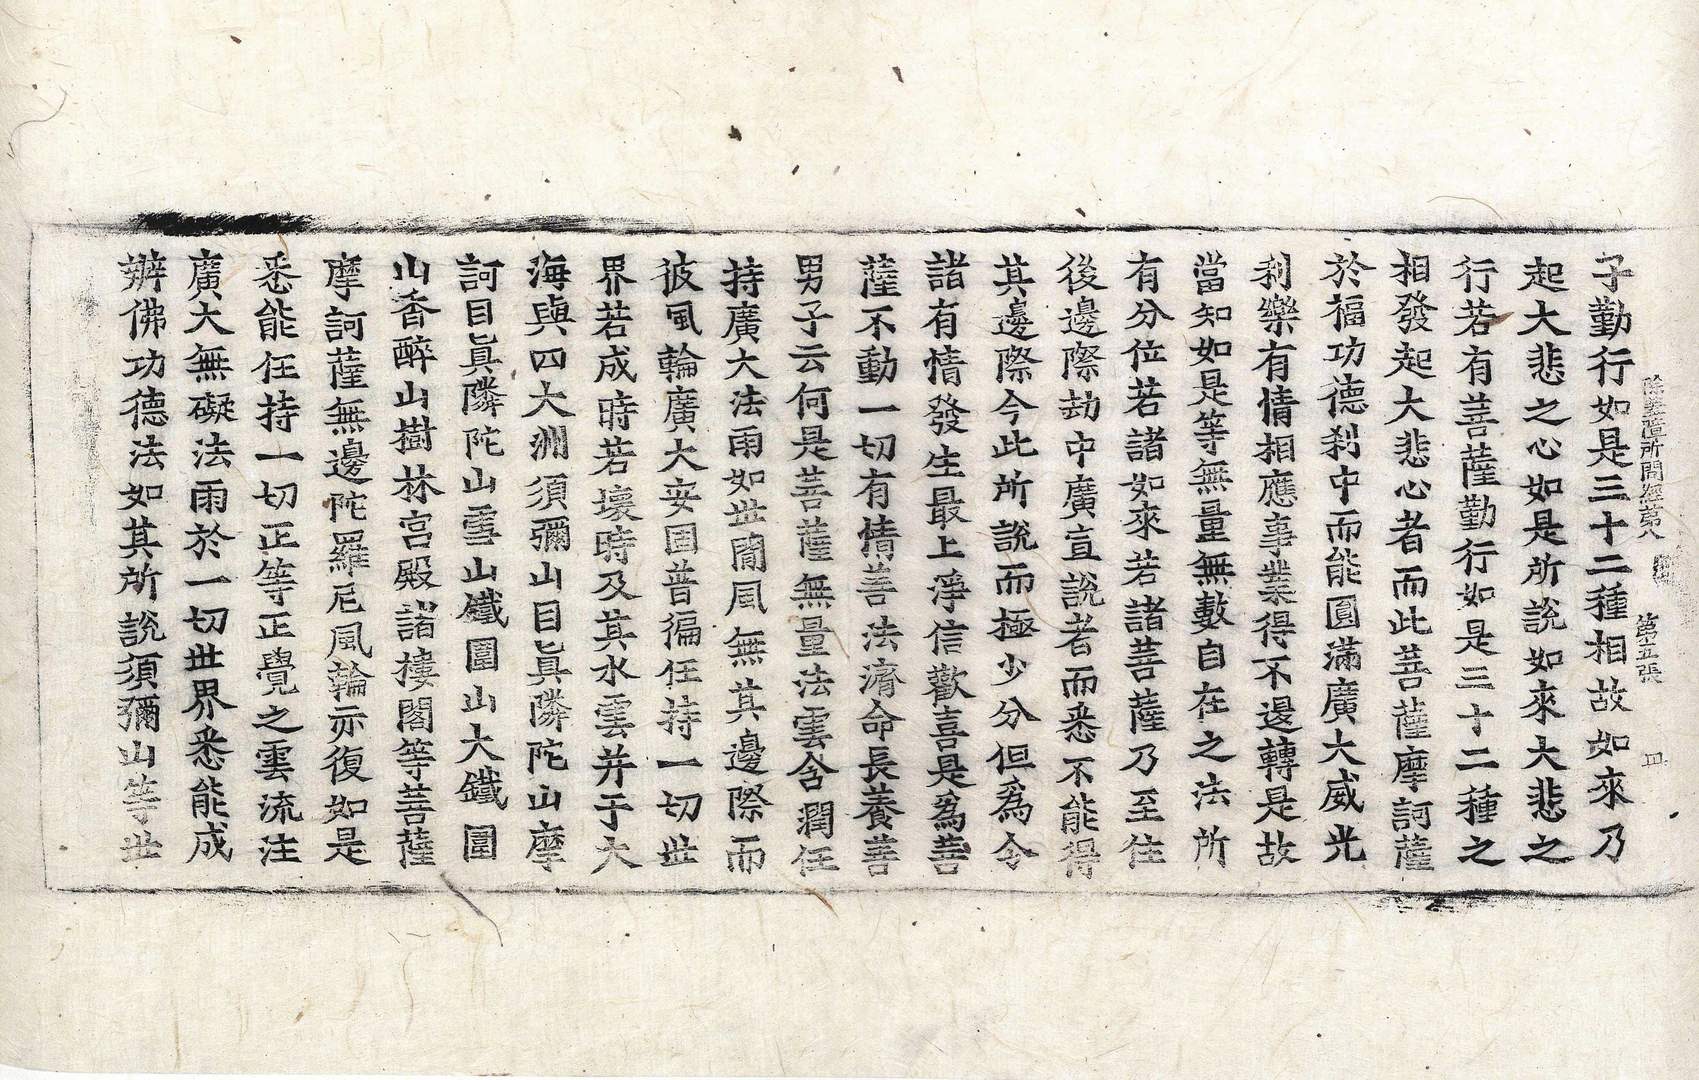 除蓋障所問經第八 第五張 四
子勤行如是三十二種相故如來乃
起大悲之心如是所說如來大悲之
行若有菩薩勤行如是三十二種之
相發起大悲心者而此菩薩摩訶薩
於福功德刹中而能圓滿廣大威光
利樂有情相應事業得不退轉是故
當知如是等無量無數自在之法所
有分位若諸如來若諸菩薩乃至住
後邊際劫中廣宣說者而悉不能得
其邊際今此所說而極少分但為令
諸有情發生最上淨信歡喜是為菩
薩不動一切有情善法濟命長養善
男子云何是菩薩無量法雲含潤任
持廣大法雨如世間風無其邊際而
彼風輪廣大安固普徧任持一切世
界若成時若壞時及其水雲并于大
海與四大洲須彌山目眞隣陀山摩
訶目眞隣陀山雪山鐵圍山大鐵圍
山香醉山樹林宮殿諸樓閣等菩薩
摩訶薩無邊陀羅尼風輪亦復如是
悉能任持一切正等正覺之雲流注
廣大無礙法雨於一切世界悉能成
辦佛功德法如其所說須彌山等世